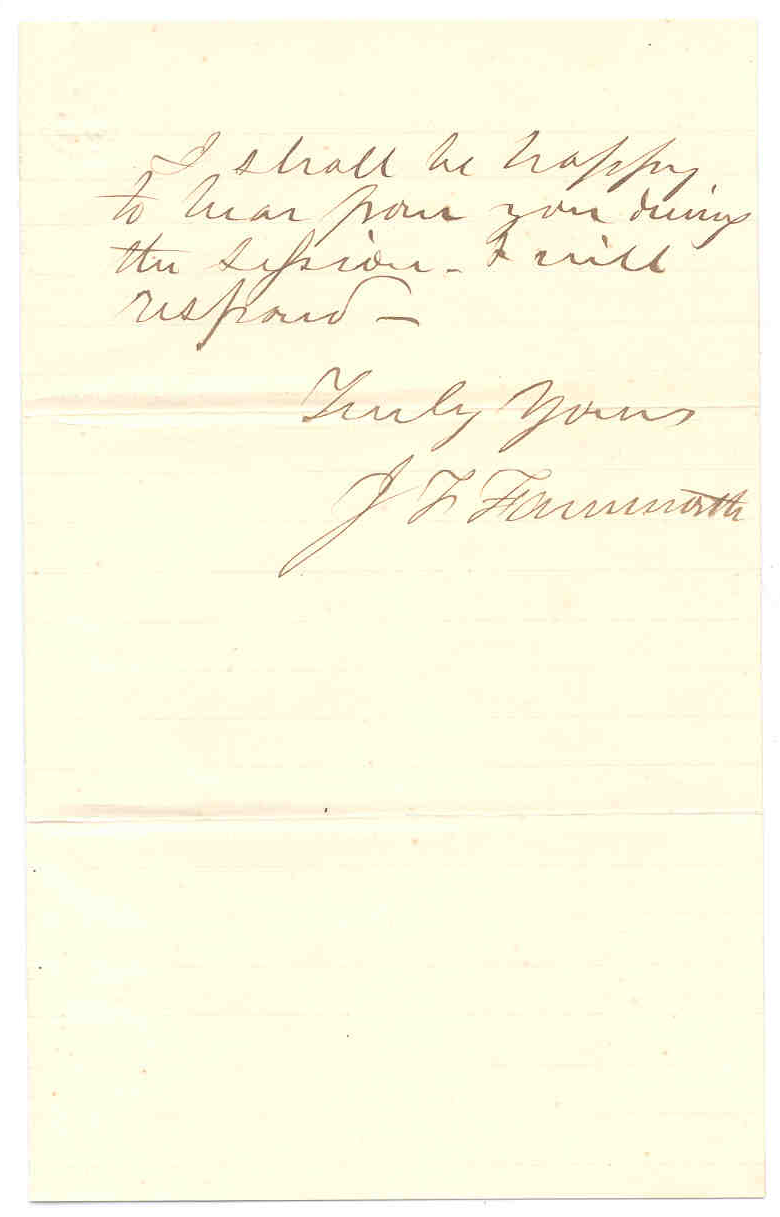 I shall be happy
to hear from you during
the session - I will
respond -
Truly Yours
J F Farnsworth